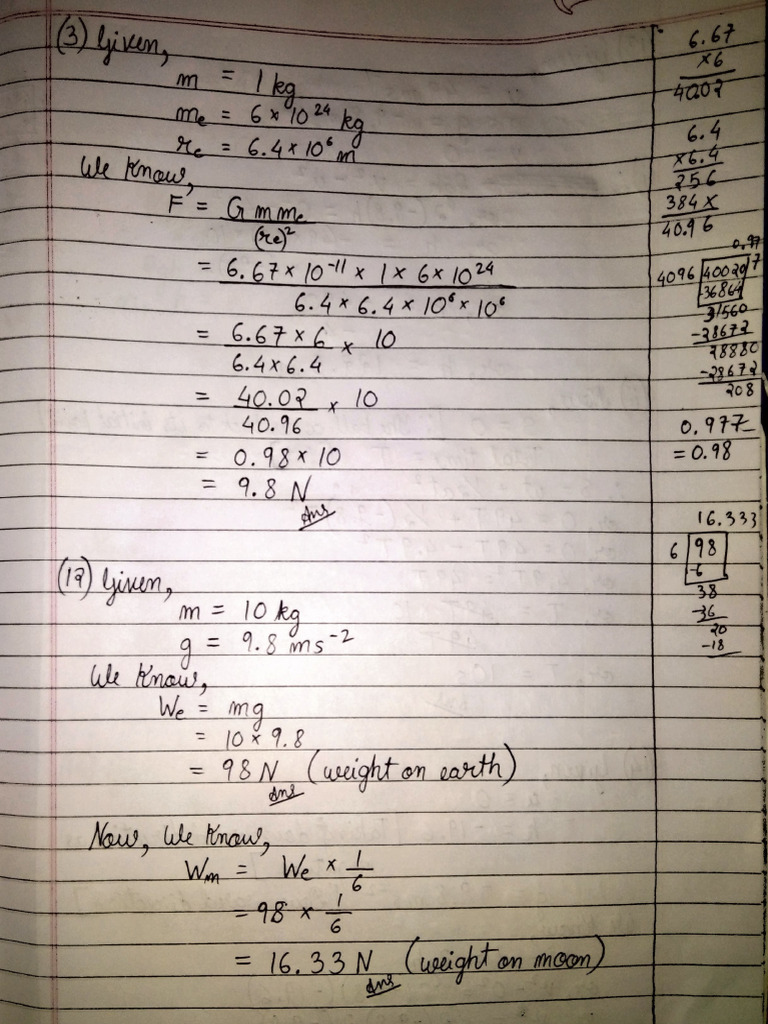 (3) Given,
m = 1 kg
me = 6 × 10²⁴ kg
re = 6.4 × 10⁶ m
We Know,
F = G m me
(re)²
= 6.67 × 10⁻¹¹ × 1 × 6 × 10²⁴
6.4 × 6.4 × 10⁶ × 10⁶
= 6.67 × 6 × 10
6.4 × 6.4
= 40.02 × 10
40.96
= 0.98 × 10
= 9.8 N
Ans
(12) Given,
m = 10 kg
g = 9.8 ms⁻²
We Know,
We = mg
= 10 × 9.8
= 98 N (weight on earth)
Ans
Now, We Know,
Wm = We × 1/6
= 98 × 1/6
= 16.33 N (weight on moon)
Ans
6.67
×6
40.02
6.4
×6.4
256
384×
40.96
4096
36864
31560
-28672
28880
-28672
208
0.977
= 0.98
16.333
6 98
-6
38
-36
20
-18